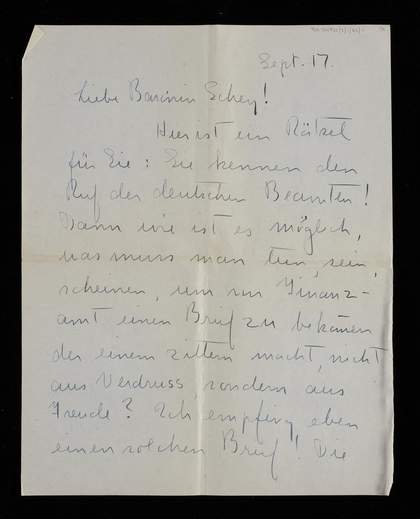 Sept. 17.
Liebe Baronin Schey!
Hier ist ein Rätsel
für Sie: Sie kennen den
Ruf der deutschen Beamten!
Dann wie ist es möglich,
was muss man tun, sein,
scheinen, um vom Finanz-
amt einen Brief zu bekommen
der einem zittern macht, nicht
aus Verdruss, sondern aus
Freude? Ich empfing eben
einen solchen Brief! Die